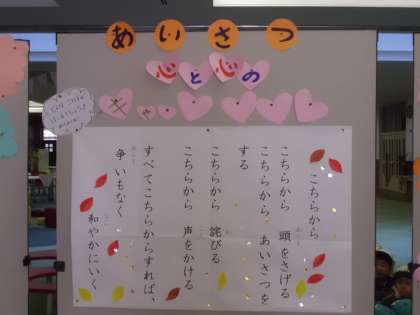 あいさつ
心と心の
キャ
こちらから
こちらから　頭をさげる
こちらから　あいさつを
する
こちらから　詫びる
こちらから　声をかける
すべてこちらからすれば、
争いもなく
和やかにいく